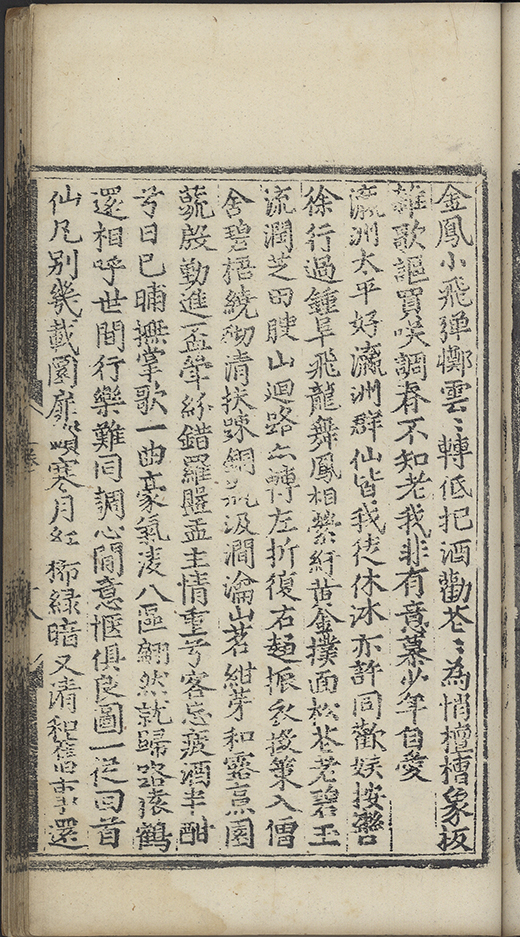 金鳳小飛彈𢣷雲〻轉低把酒勸花〻為悄檀槽象板
雜歌謳買咲調春不知老我非有意慕少年自愛
瀛洲太平好瀛洲群仙皆我徒休沐亦許同歡娛按轡
徐行過鍾阜飛龍舞鳳相縈紆黄金撲面松花老碧玉
流潤芝田腴山迴路亦轉左折復右趨振衣投策入僧
舍碧梧繞砌清扶踈銅瓶汲澗瀹山茗紺芽和露烹園
蔬殷勤進盃斝紛錯羅盤盂主情重兮客忘疲酒半酣
兮日已晡撫掌歌一曲豪氣凌八區翩然就歸路猿鶴
還相呼世間行樂難同調心閒意愜俱良圖一從回首
仙凡别幾載園扉頻寒月紅稀緑暗又清和舊事還